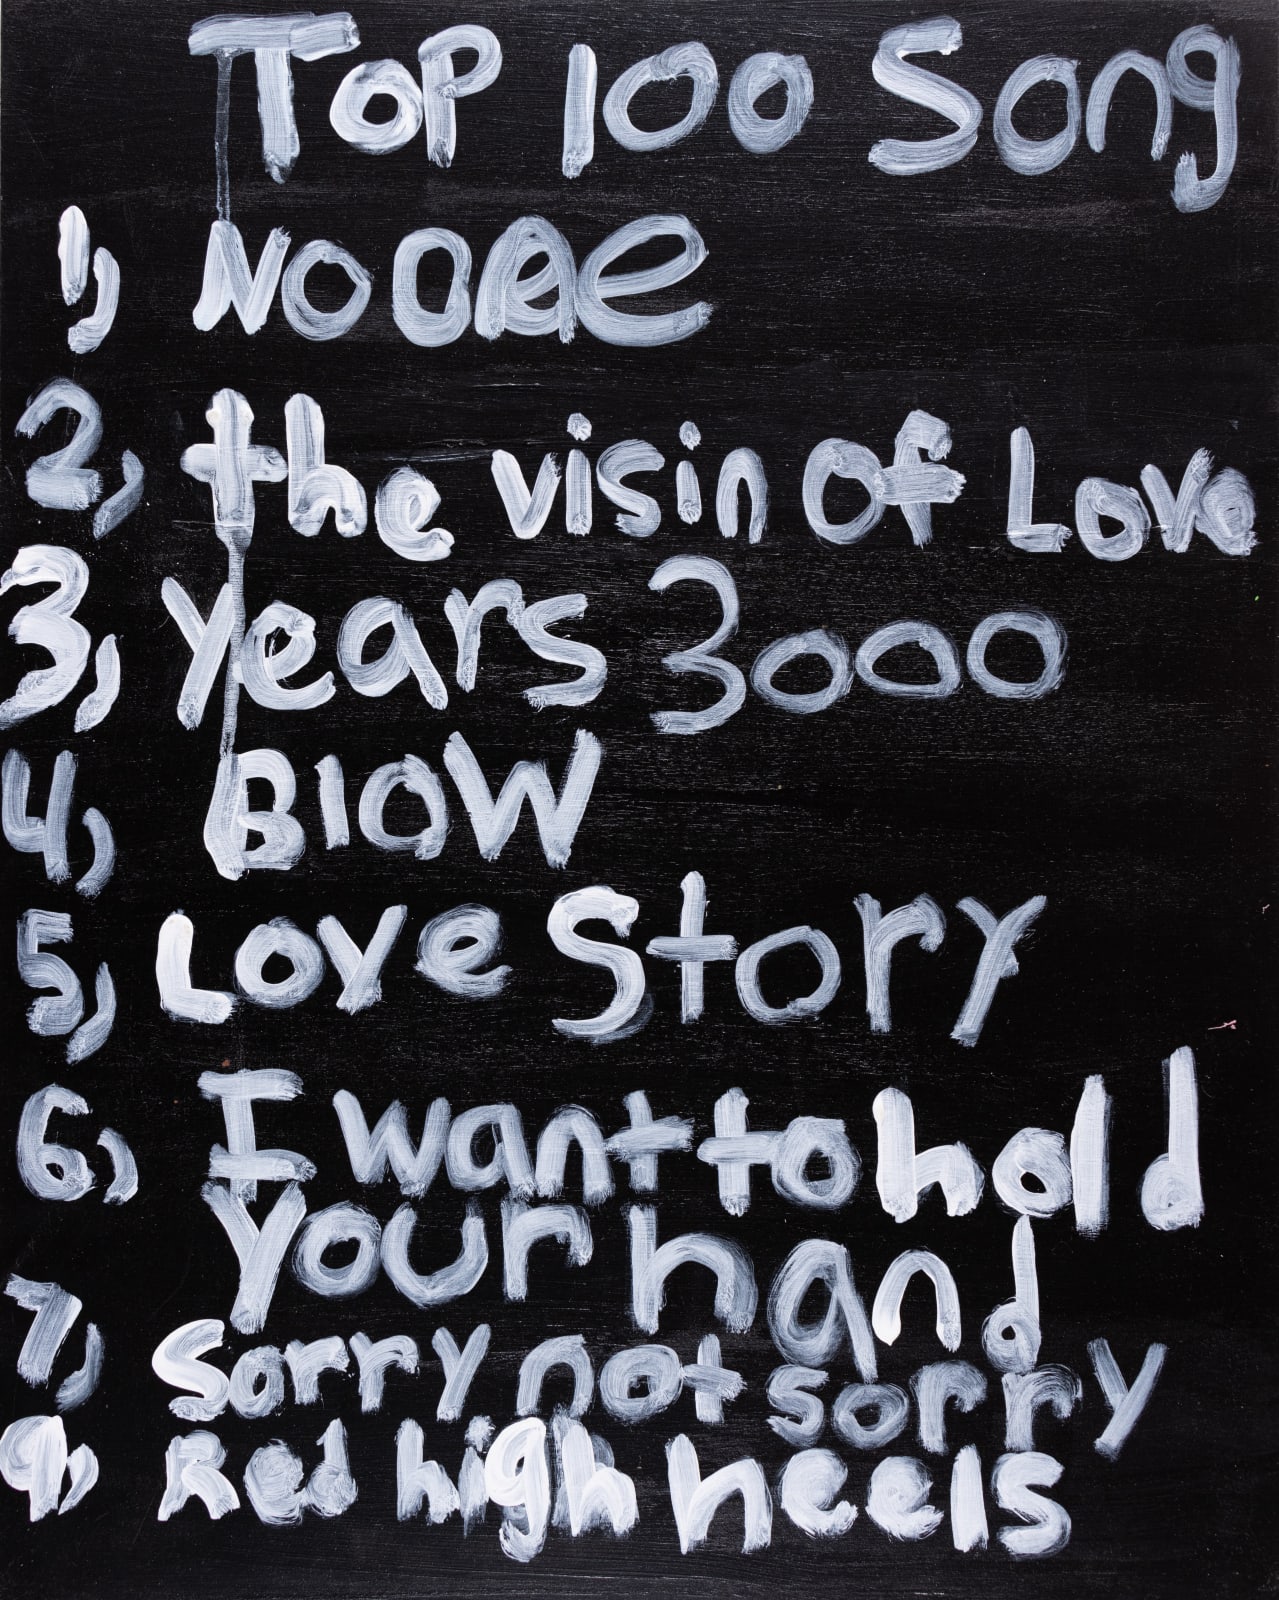 Top 100 Song
1, NO
2, the visin of Love
3, years 3000
4, BloW
5, Love Story
6, I want to hold
your hand
7, Sorry not sorry
9, Red high heels